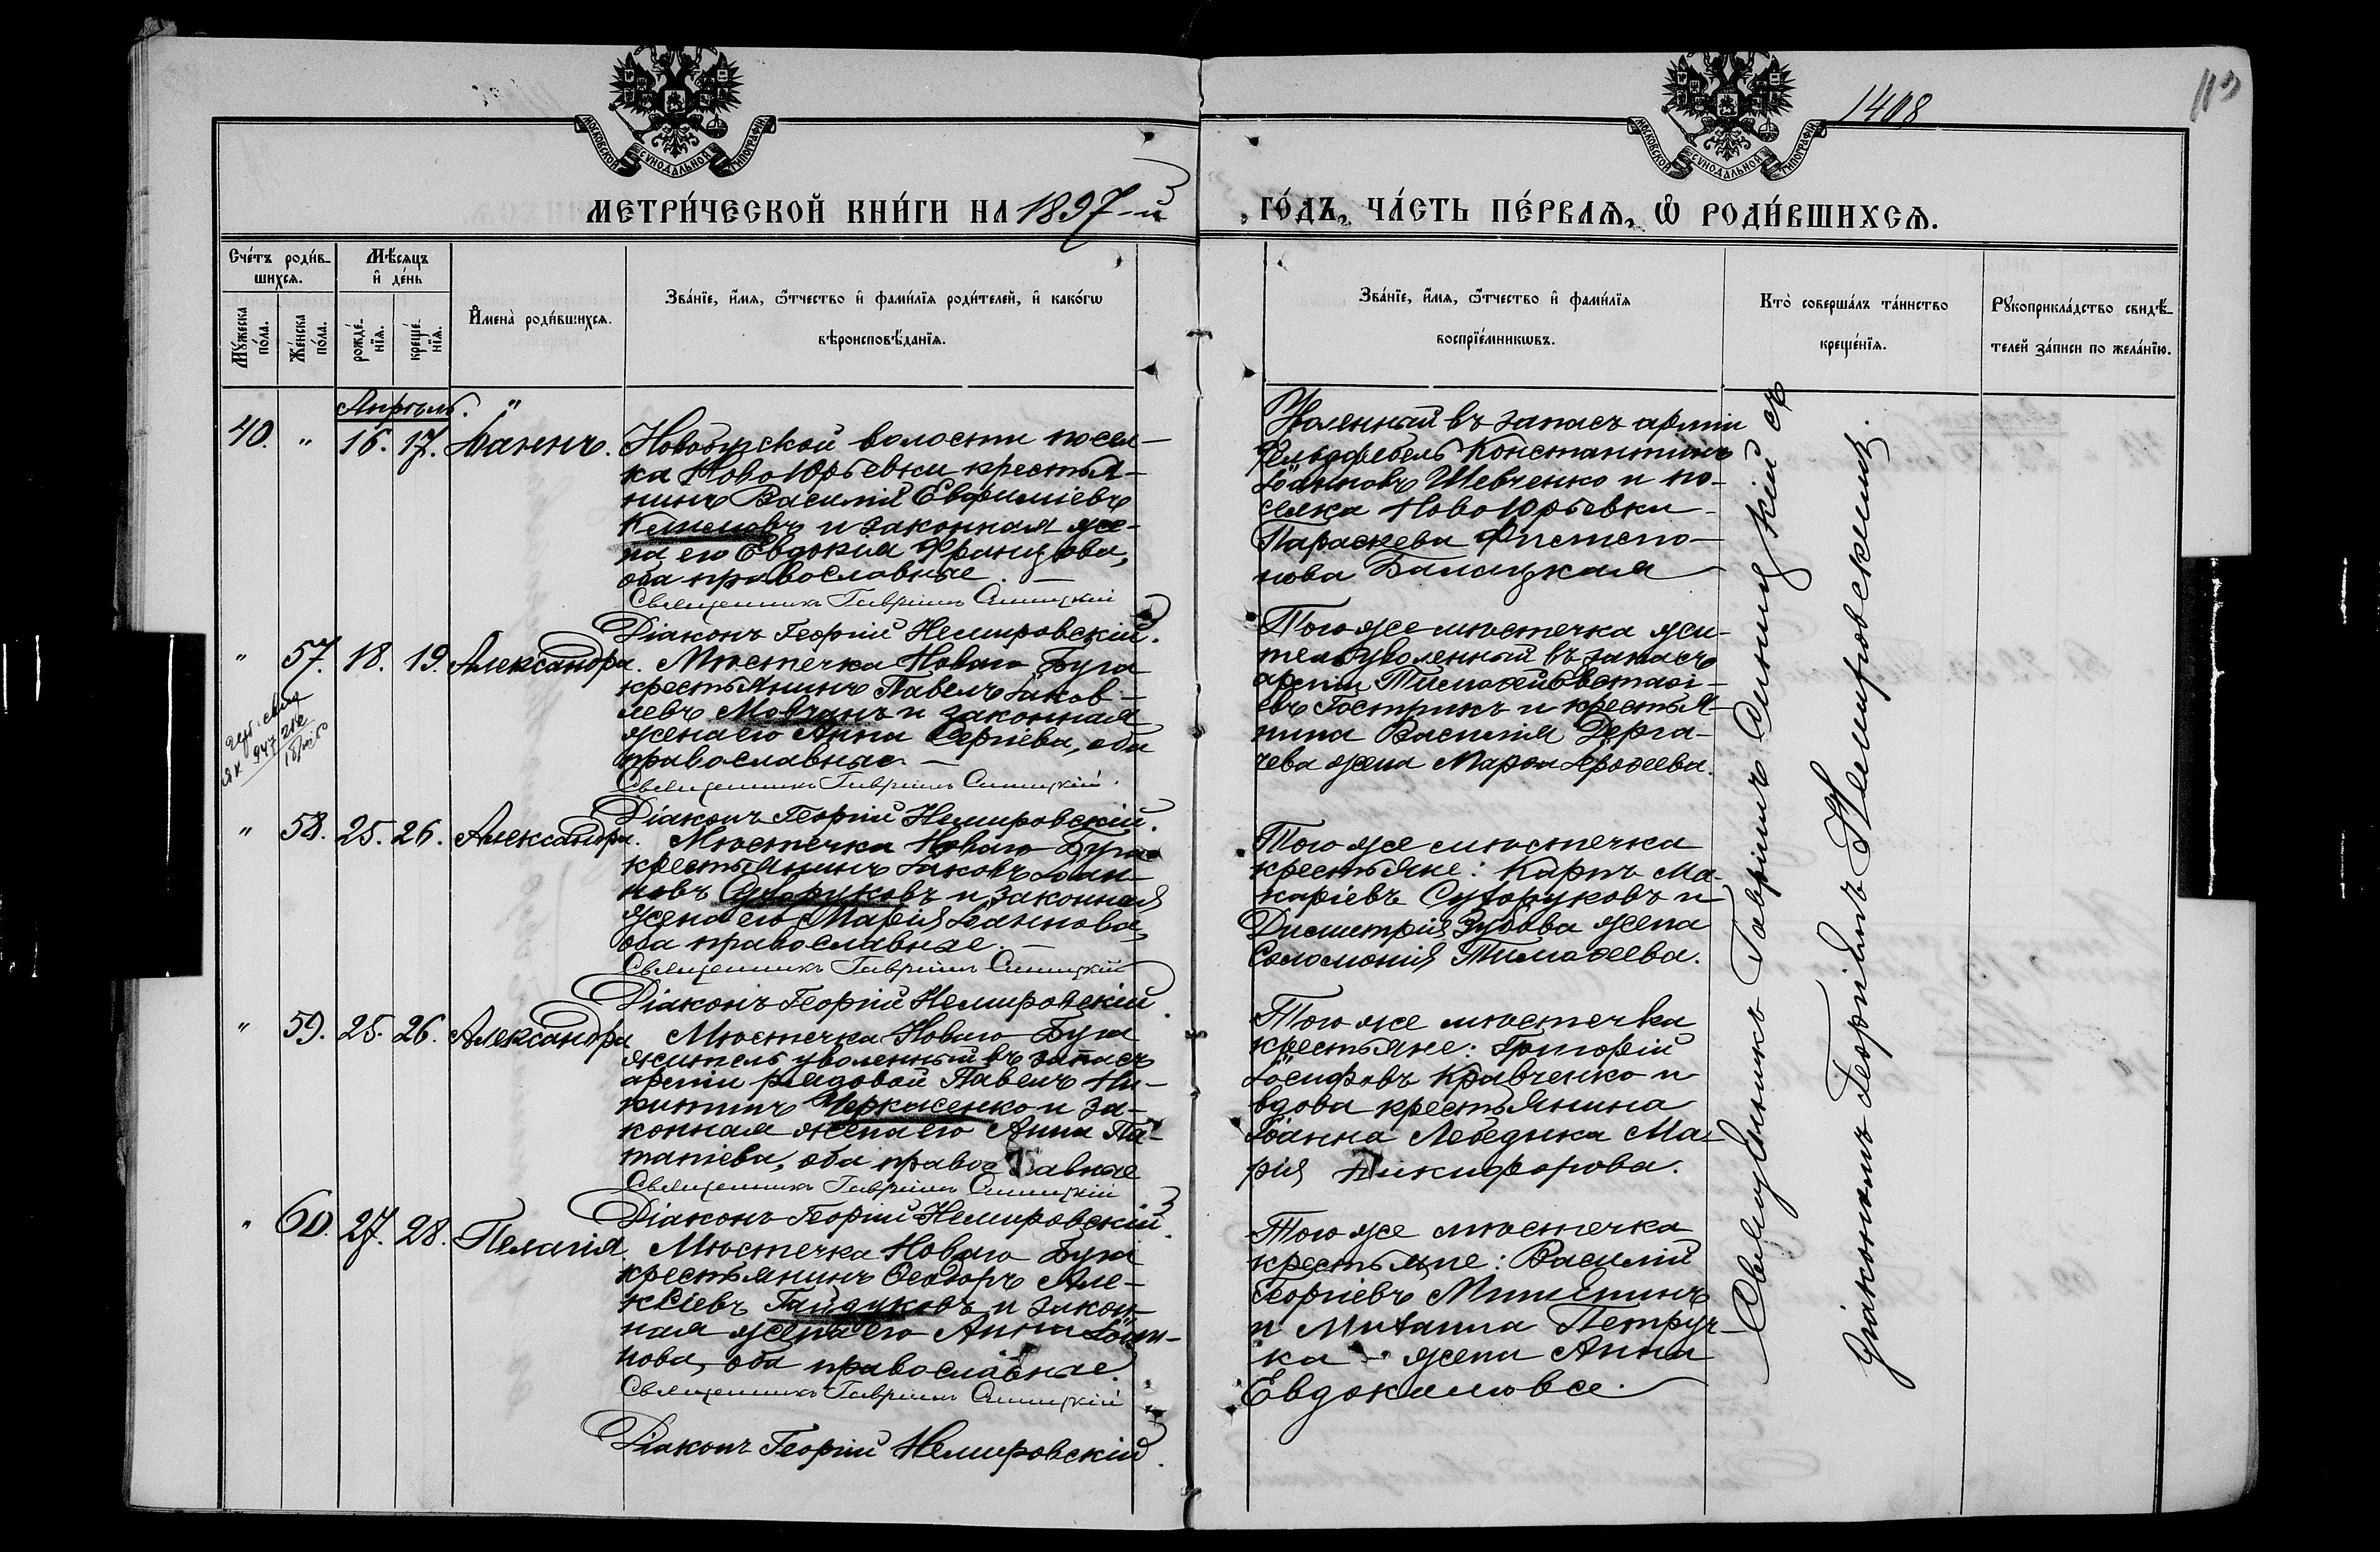 1408
МОСКОВСКОЙ СѴНОДАЛЬНОЙ ТИПОГРАФІИ
МОСКОВСКОЙ СѴНОДАЛЬНОЙ ТИПОГРАФІИ
МЕТРИ́ЧЕСКОЙ КНИ́ГИ НА 1897-й
ГО́ДЪ, ЧА́СТЬ ПЕ́РВАѦ, Ѡ҆ РОДИ́ВШИХСѦ.
Сче́тъ роди́в-
шихсѧ.
Мѣ́сѧцъ
и҆ де́нь
Мꙋ́жеска по́ла.
Же́нска по́ла.
рожде́-
нїѧ.
креще́-
нїѧ.
И҆мена̀ роди́вшихсѧ.
Зва́нїе, и҆́мѧ, ѻ҆́тчество и҆ фами́лїѧ роди́телей, и҆ како́гѡ
вѣроисповѣ́данїѧ.
Зва́нїе, и҆́мѧ, ѻ҆́тчество и҆ фами́лїѧ
воспрїе́мникѡвъ.
Кто̀ соверша́лъ та́инство
креще́нїѧ.
Рꙋкоприкла́дство свидѣ́-
телей за́писи по жела́нїю.
Апрѣль. "
40. " 16. 17. Іоаннъ. Новобугской волости посел-
ка НовоЮрьевки крестья-
нинъ Василій Евфиміевъ
и законная же-
на его Евдокія Францова,
оба православные. —
Священникъ Гавріилъ Синицкій
Діаконъ Георгій Немировскій.
Уволенный въ запасъ арміи
Фельдфебель Константинъ
Іоанновъ Шевченко и по-
селка НовоЮрьевки
Параскева
нова Балацкая
" 57. 18. 19. Александра. Мѣстечка Новаго Буга
крестьянинъ Павелъ Іаков-
левъ Мовчанъ и законная
жена его Анна Сергіева, оба
православные. —
Священникъ Гавріилъ Синицкій.
Діаконъ Георгій Немировскій.
Того же мѣстечка жи-
тель уволенный въ запасъ
арміи Тимоѳей Евстаѳі-
евъ Гострикъ и крестья-
нина Василія Дерга-
чева жена Марѳа Іероѳеева.
" 58. 25. 26. Александра. Мѣстечка Новаго Буга
крестьянинъ Іаковъ Іоан-
новъ Сухоруковъ и законная
жена его Марія Іоаннова,
оба православные. —
Священникъ Гавріилъ Синицкій
Діаконъ Георгій Немировскій
Того же мѣстечка
крестьяне: Карпъ Ма-
каріевъ Сухоруковъ и
Димитрія Зубова жена
Соломонія Тимоѳеева.
" 59. 25. 26. Александра Мѣстечка Новаго Буга
житель уволенный въ запасъ
арміи рядовой Павелъ Ни-
китинъ Черкасенко и за-
конная жена его Анна По-
тапіева, оба православные
Священникъ Гавріилъ Синицкій
Діаконъ Георгій Немировскій.
Того же мѣстечка
крестьяне: Григорій
Іосифовъ Кравченко и
вдова крестьянина
Іоанна Лебедика Ма-
рія Никифорова.
" 60. 27. 28. Пелагія Мѣстечка Новаго Буга
крестьянинъ Ѳеодоръ Але-
ксіевъ Гайдуковъ и закон-
ная жена его Анна Іоан-
нова, оба православные.
Священникъ Гавріилъ Синицкій
Діаконъ Георгій Немировскій.
Того же мѣстечка
крестьяне: Василій
Георгіевъ
и Михаила Петруч-
ка — жена Анна
Евдокимовва.
Священникъ Гавріилъ Синицкій съ
Діакономъ Георгіемъ Немировскимъ.